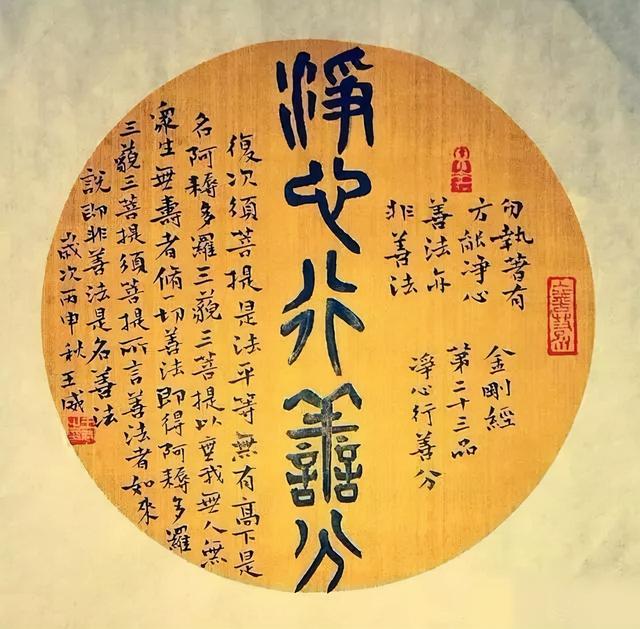 勿執著有
方能淨心
善法亦
非善法
金剛經
第二十三品
淨心行善分
淨心行善分
復次須菩提是法平等無有高下是
名阿耨多羅三藐三菩提以無我無人無
衆生無壽者脩一切善法即得阿耨多羅
三藐三菩提須菩提所言善法者如來
說即非善法是名善法
歲次丙申秋王